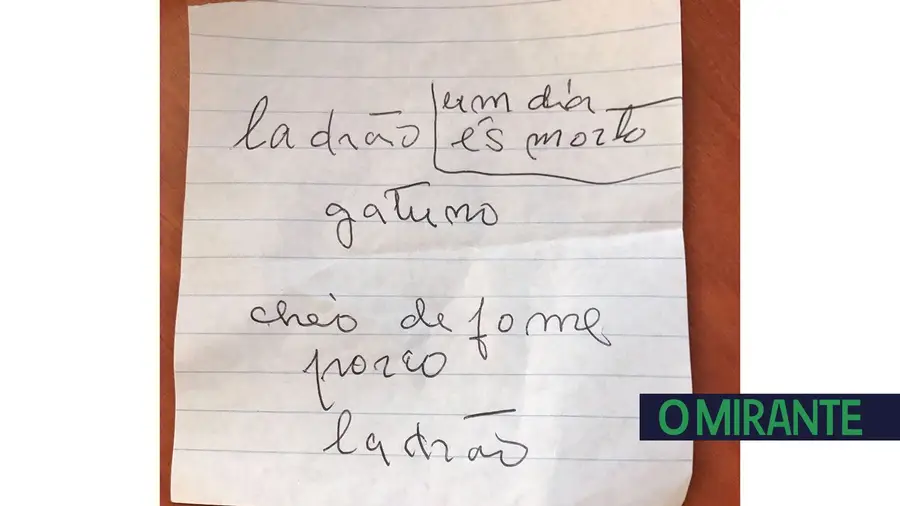 ladrão
um dia
és morto
gatuno
cheio de fome
porco
ladrão
O MIRANTE